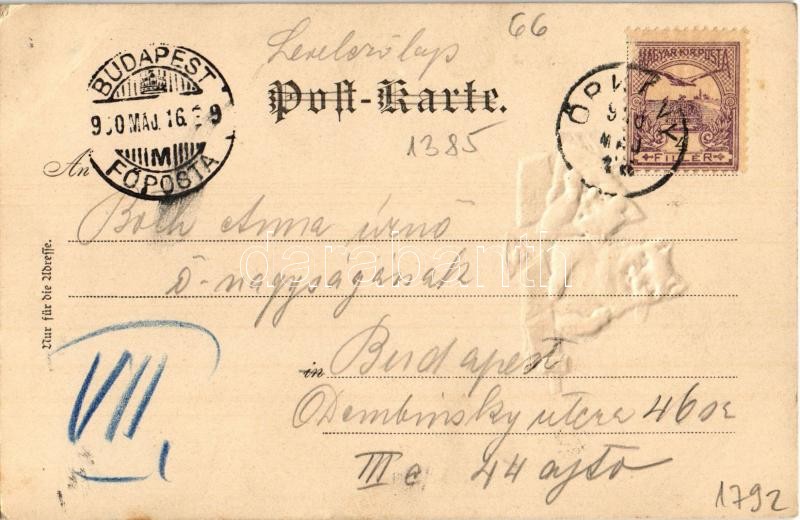 66
Levelezőlap
Post-Karte.
1385
BUDAPEST
900 MÁJ. 16.
M
FŐPOSTA
MAGYAR KIR. POSTA
4
FILLÉR
An
Both Anna úrnő
ő-nagyságának
in Budapest
Dembinsky utcza 46 sz
III e 44 ajtó
Nur für die Adresse.
VII
1792
darabanth